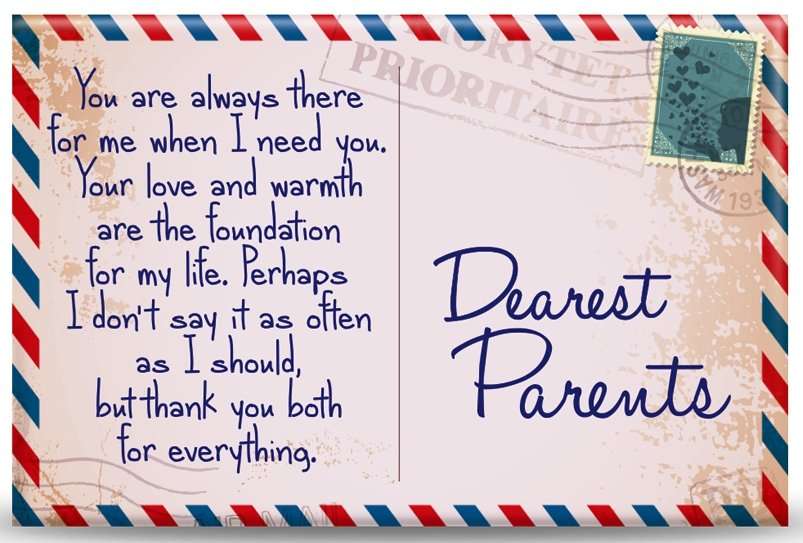 You are always there
for me when I need you.
Your love and warmth
are the foundation
for my life. Perhaps
I don't say it as often
as I should,
but thank you both
for everything.
PRIORITAIRE
Dearest
Parents